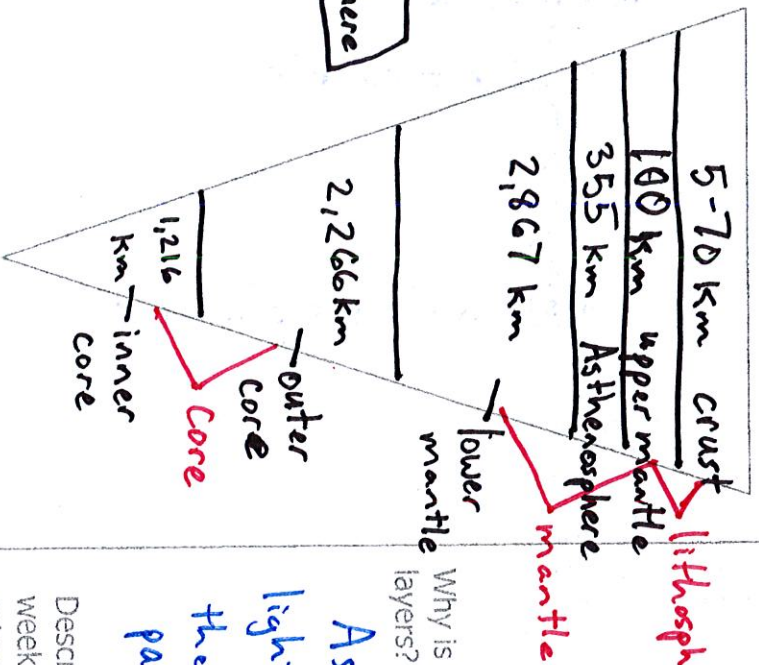 here
5-70 km crust
100 km upper mantle
355 km Asthenosphere
2,867 km
lower
mantle
2,266 km
outer
core
1,216
km
inner
core
core
mantle
lithosph
Why is
layers?
As
ligh
the
pa
Descr
week